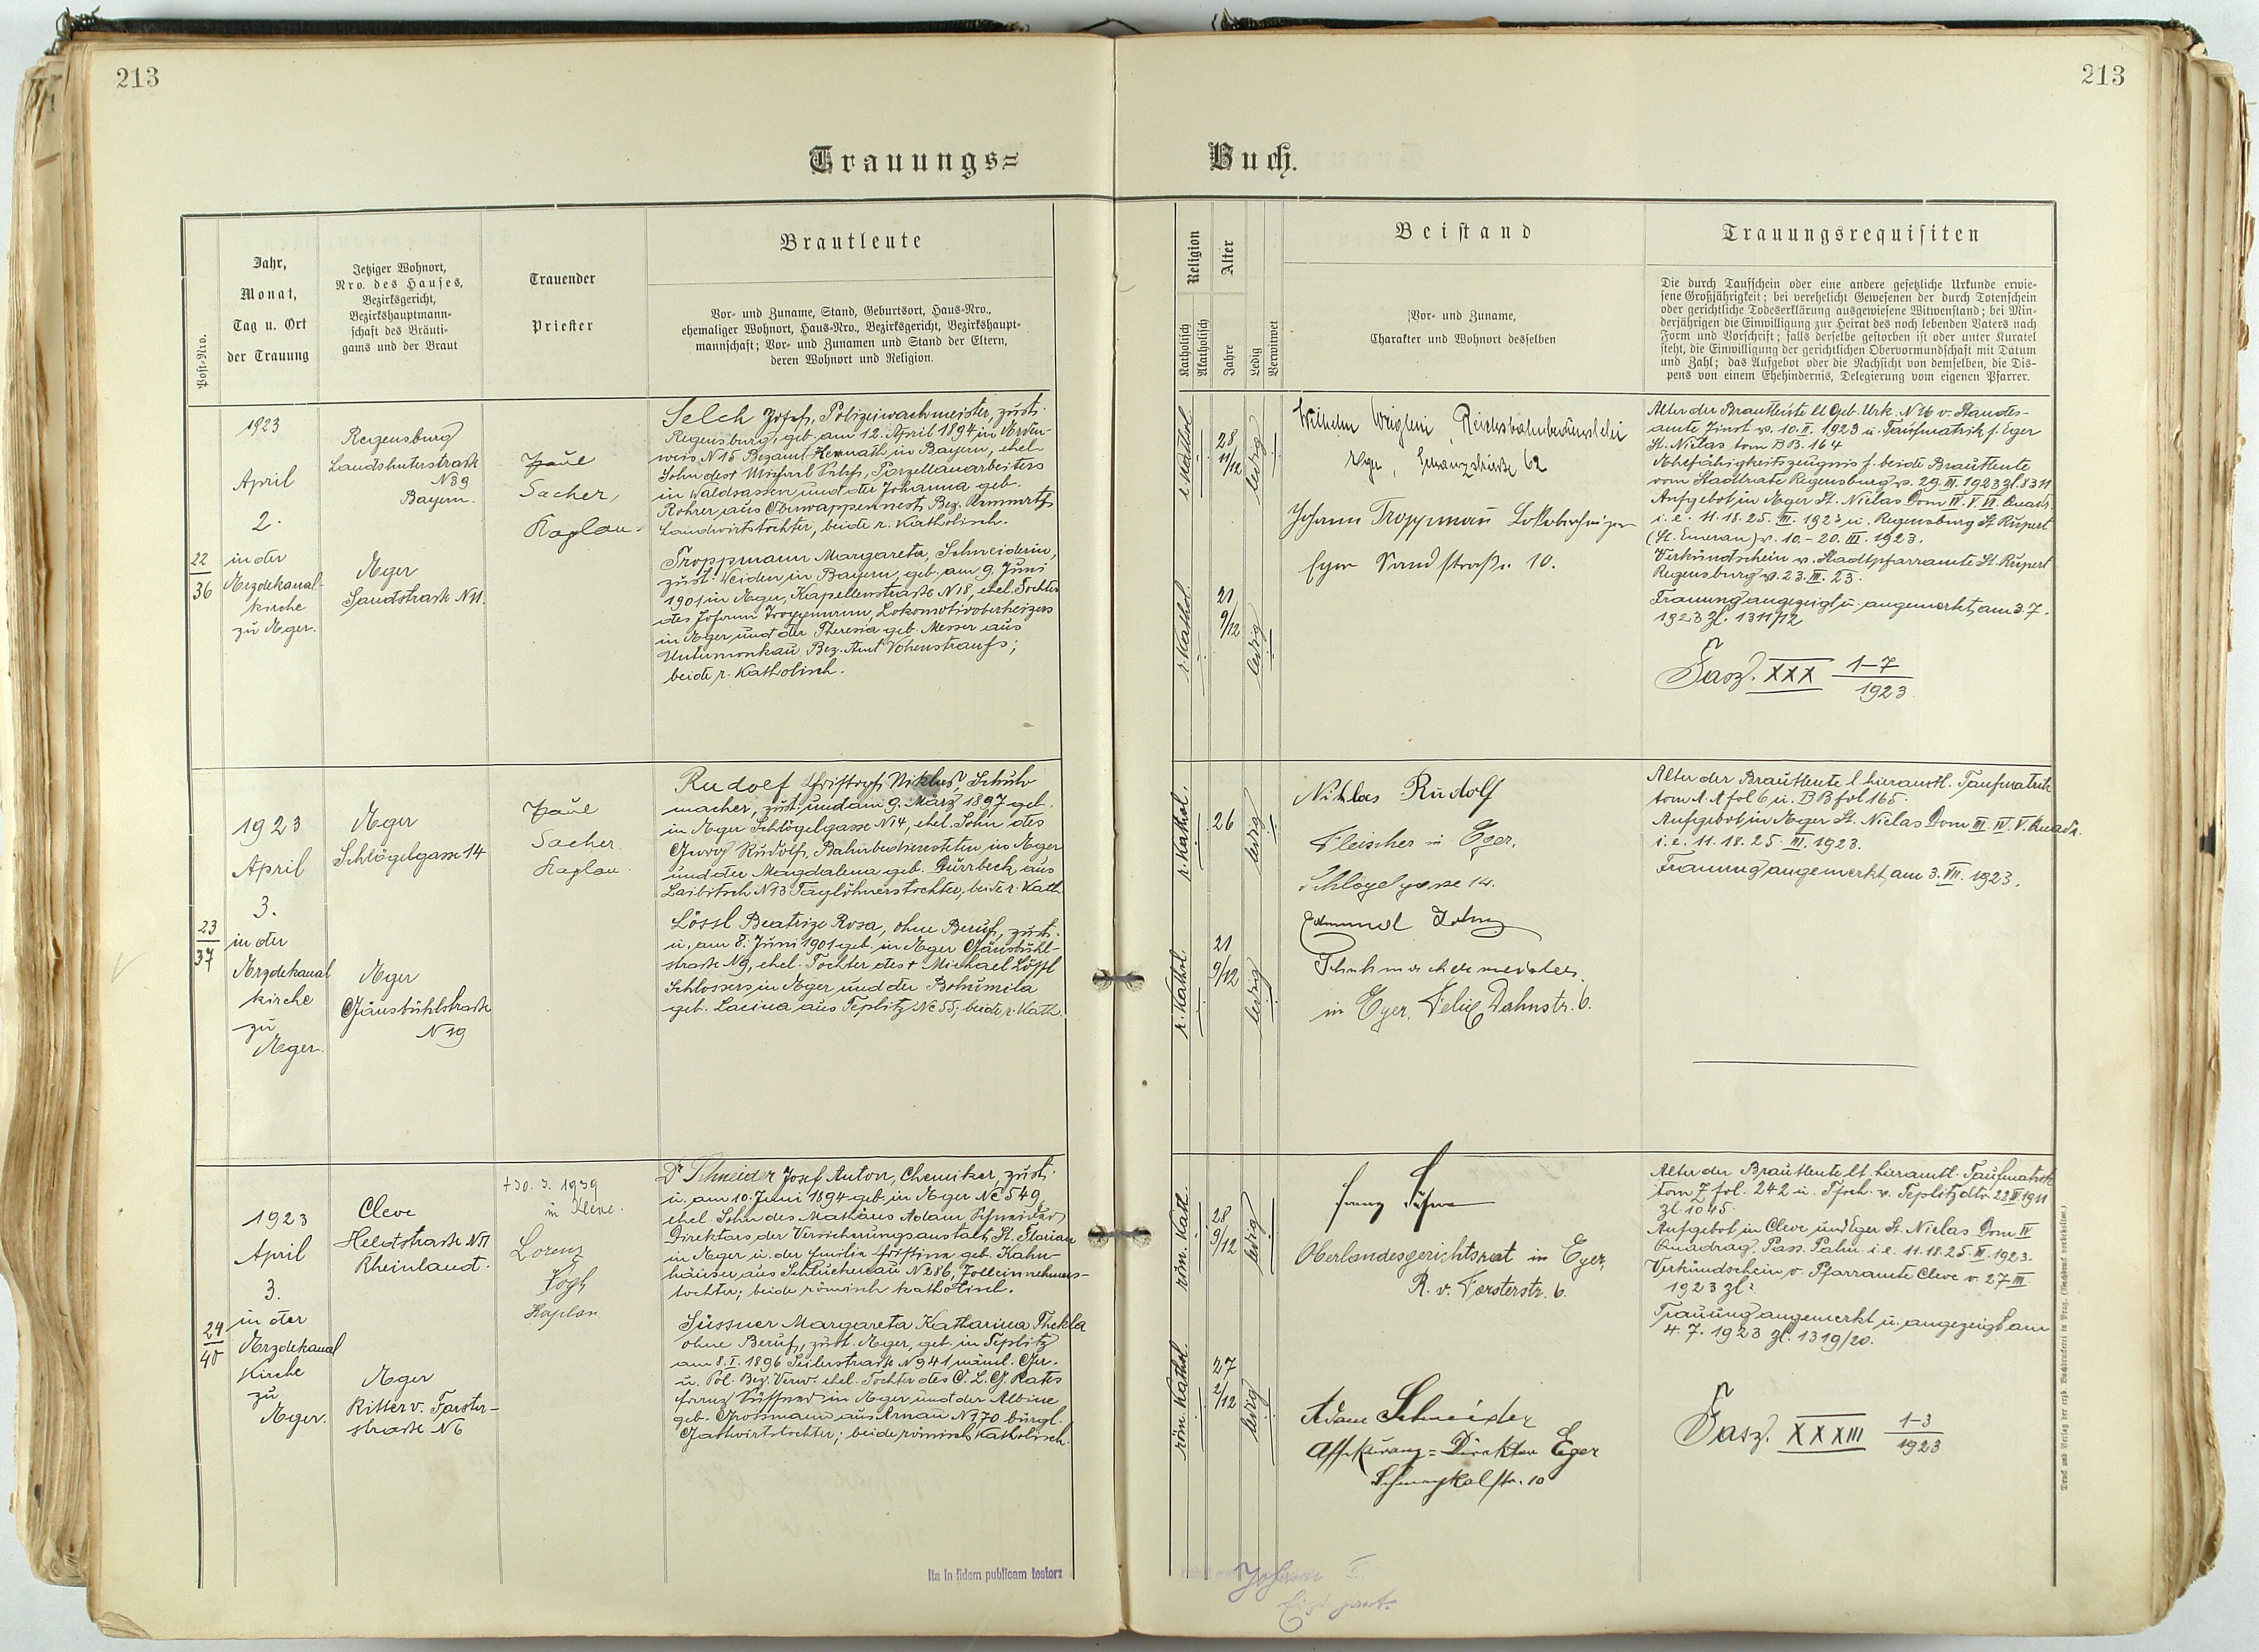 213
213
Trauungs=
Buch.
Post-Nro.
Jahr,
Monat,
Tag u. Ort
der Trauung
Jetziger Wohnort,
Nro. des Hauses,
Bezirksgericht,
Bezirkshauptmann-
schaft des Bräuti-
gams und der Braut
Trauender
Priester
Brautleute
Vor- und Zuname, Stand, Geburtsort, Haus-Nro.,
ehemaliger Wohnort, Haus-Nro., Bezirksgericht, Bezirkshaupt-
mannschaft; Vor- und Zunamen und Stand der Eltern,
deren Wohnort und Religion.
Religion
Katholisch
Akatholisch
Alter
Jahre
Ledig
Verwitwet
Beistand
Vor- und Zuname,
Charakter und Wohnort desselben
Trauungsrequisiten
Die durch Taufschein oder eine andere gesetzliche Urkunde erwie-
sene Großjährigkeit; bei verehelicht Gewesenen der durch Totenschein
oder gerichtliche Todeserklärung ausgewiesene Witwenstand; bei Min-
derjährigen die Einwilligung zur Heirat des noch lebenden Vaters nach
Form und Vorschrift; falls derselbe gestorben ist oder unter Kuratel
steht, die Einwilligung der gerichtlichen Obervormundschaft mit Datum
und Zahl; das Aufgebot oder die Nachsicht von demselben, die Dis-
pens von einem Ehehindernis, Delegierung vom eigenen Pfarrer.
22
36
1923
April
2.
in der
Erzdekanal-
kirche
zu Eger.
Regensburg
Landshuterstraße
N 39
Bayern.
Eger
Sandstraße N 11.
Paul
Sacher,
Kaplan.
Selch Josef, Polizeiwachmeister, zust.
Regensburg, geb. am 12. April 1894 in
weis N 15 Bezamt Kemnath in Bayern, ehel.
Sohn des Michael Selch, Porzellanarbeiters
in Waldsassen und der Johanna geb.
Rohrer aus Oberwappenöst, Bez.
Landwirtstochter, beide r. katholisch.
Troppmann Margareta, Schneiderin,
zust. Weiden in Bayern, geb. am 9. Juni
1901 in Eger, Kapellenstraße N 18, ehel. Tochter
des Johann Troppmann, Lokomotivoberheizers
in Eger und der Theresia geb. Messer aus
Bez. Amt Vohenstrauß;
beide r. katholisch.
r. Kathol.
28
11/12
ledig
r. Kathol.
21
9/12
ledig
Wilhelm
Eger, 62
Johann Troppmann
Eger Sandstraße 10.
Alter der Brautleute lt Geb. Urk. N 26 v. Standes-
amte v. 10. II. 1923 u. Taufmatrik f. Eger
St. Niclas tom BB. 164
Ehefähigkeitszeugnis f. beide Brautleute
vom Stadtrate Regensburg v. 29. III. 1923 zl. 8311
Aufgebot in Eger St. Niclas Dom IV. V. VI. Quadr.
i. e. 11. 18. 25. III. 1923 u. Regensburg St Rupert
(St. Emeran) v. 10.-20. III. 1923.
Verkündschein v. Stadtpfarramte St. Rupert
Regensburg v. 23. III. 23.
Trauung angezeigt u. angemerkt am 3. 7.
1923 zl. 1311/12
Fasz. XXX 1-7
1923
23
37
1923
April
3.
in der
Erzdekanal
kirche
zu
Eger.
Eger
Schlögelgasse 14
Eger
Gänsbühlstraße
N 39
Paul
Sacher.
Kaplan.
Rudolf Christoph Niklas, Schuh-
macher, zust. und am 9. März 1897 geb.
in Eger Schlögelgasse N 14, ehel. Sohn des
Georg Rudolf, Bahnbediensteten in Eger
und der Magdalena geb. Dürrbeck aus
Laibitsch N 13 Taglöhnerstochter, beide r. Kath.
Lössl Beatrize Rosa, ohne Beruf, zust.
u. am 8. Juni 1901 geb. in Eger Gänsbühl-
straße N 9, ehel. Tochter des + Michael Lössl
Schlossers in Eger und der Bohumila
geb. Lacina aus Teplitz Nc 55; beide r. Kath.
r. Kathol.
26
ledig
r. Kathol.
21
9/12
ledig
Niklas Rudolf
Fleischer in Eger.
Schlögelgasse 14.
Edmund
Schuhmachermeister
in Eger, Felix Dahnstr. 6.
Alter der Brautleute l. hieramtl. Taufmatrik
tom A. A fol 6 u. BB fol 165.
Aufgebot in Eger St. Niclas Dom III. IV. V. Quadr.
i. e. 11. 18. 25. III. 1923.
Trauung angemerkt am 3. VII. 1923.
24
40
1923
April
3.
in der
Erzdekanal
Kirche
zu
Eger.
Cleve
Rheinland.
Eger
Ritter v. Forster-
straße N 6
+ 30. 3. 1939
in Kleve.
Lorenz
Kaplan
Dr Schneider Josef Anton, Chemiker, zust.
u. am 10. Juni 1894 geb. in Eger Nc 549,
ehel. Sohn des Mathäus Adam Schneider
Direktors der Versicherungsanstalt St. Florian
in Eger u. der Emilia Christina geb. Kahn-
häuser aus Schluckenau N 286, Zolleinnehmers-
tochter; beide römisch katholisch.
Süssner Margareta Katharina Thekla
ohne Beruf, zust. Eger, geb. in Teplitz
am 8. I. 1896 Seilerstraße N 941 näml. Ger.
u. Pol. Bez. Verw. ehel. Tochter des O. L. G. Rates
Franz Süssner in Eger und der Albine
geb. Grossmann aus Arnau N 170 bürgl.
Gastwirtstochter; beide römisch Katholisch.
röm. Kath.
28
9/12
ledig
röm. Kathol.
27
2/12
ledig
Franz Süssner
Oberlandesgerichtsrat in Eger,
R. v. Forsterstr. 6.
Adam Schneider
Assekuranz=Direktor Eger
Schmeykalstr. 10
Alter der Brautleute lt. hieramtl. Taufmatrik
tom Z fol. 242 u. Tfsch. v. Teplitz dto 1911
zl. 1045.
Aufgebot in Cleve und Eger St. Niclas Dom IV
Quadrag. Pass. Palm i. e. 11. 18. 25. III. 1923.
Verkündschein v. Pfarramte Cleve v. 27 III.
1923 zl.
Trauung angemerkt u. angezeigt am
4. 7. 1923 zl. 1319/20.
Fasz. XXXIII 1-3
1923
Ita in fidem publicam testor:
Druck und Verlag der erzb. Buchdruckerei in Prag. (Nachdruck vorbehalten.)